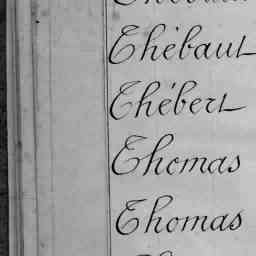 Thébaut
Thébert
Thomas
Thomas